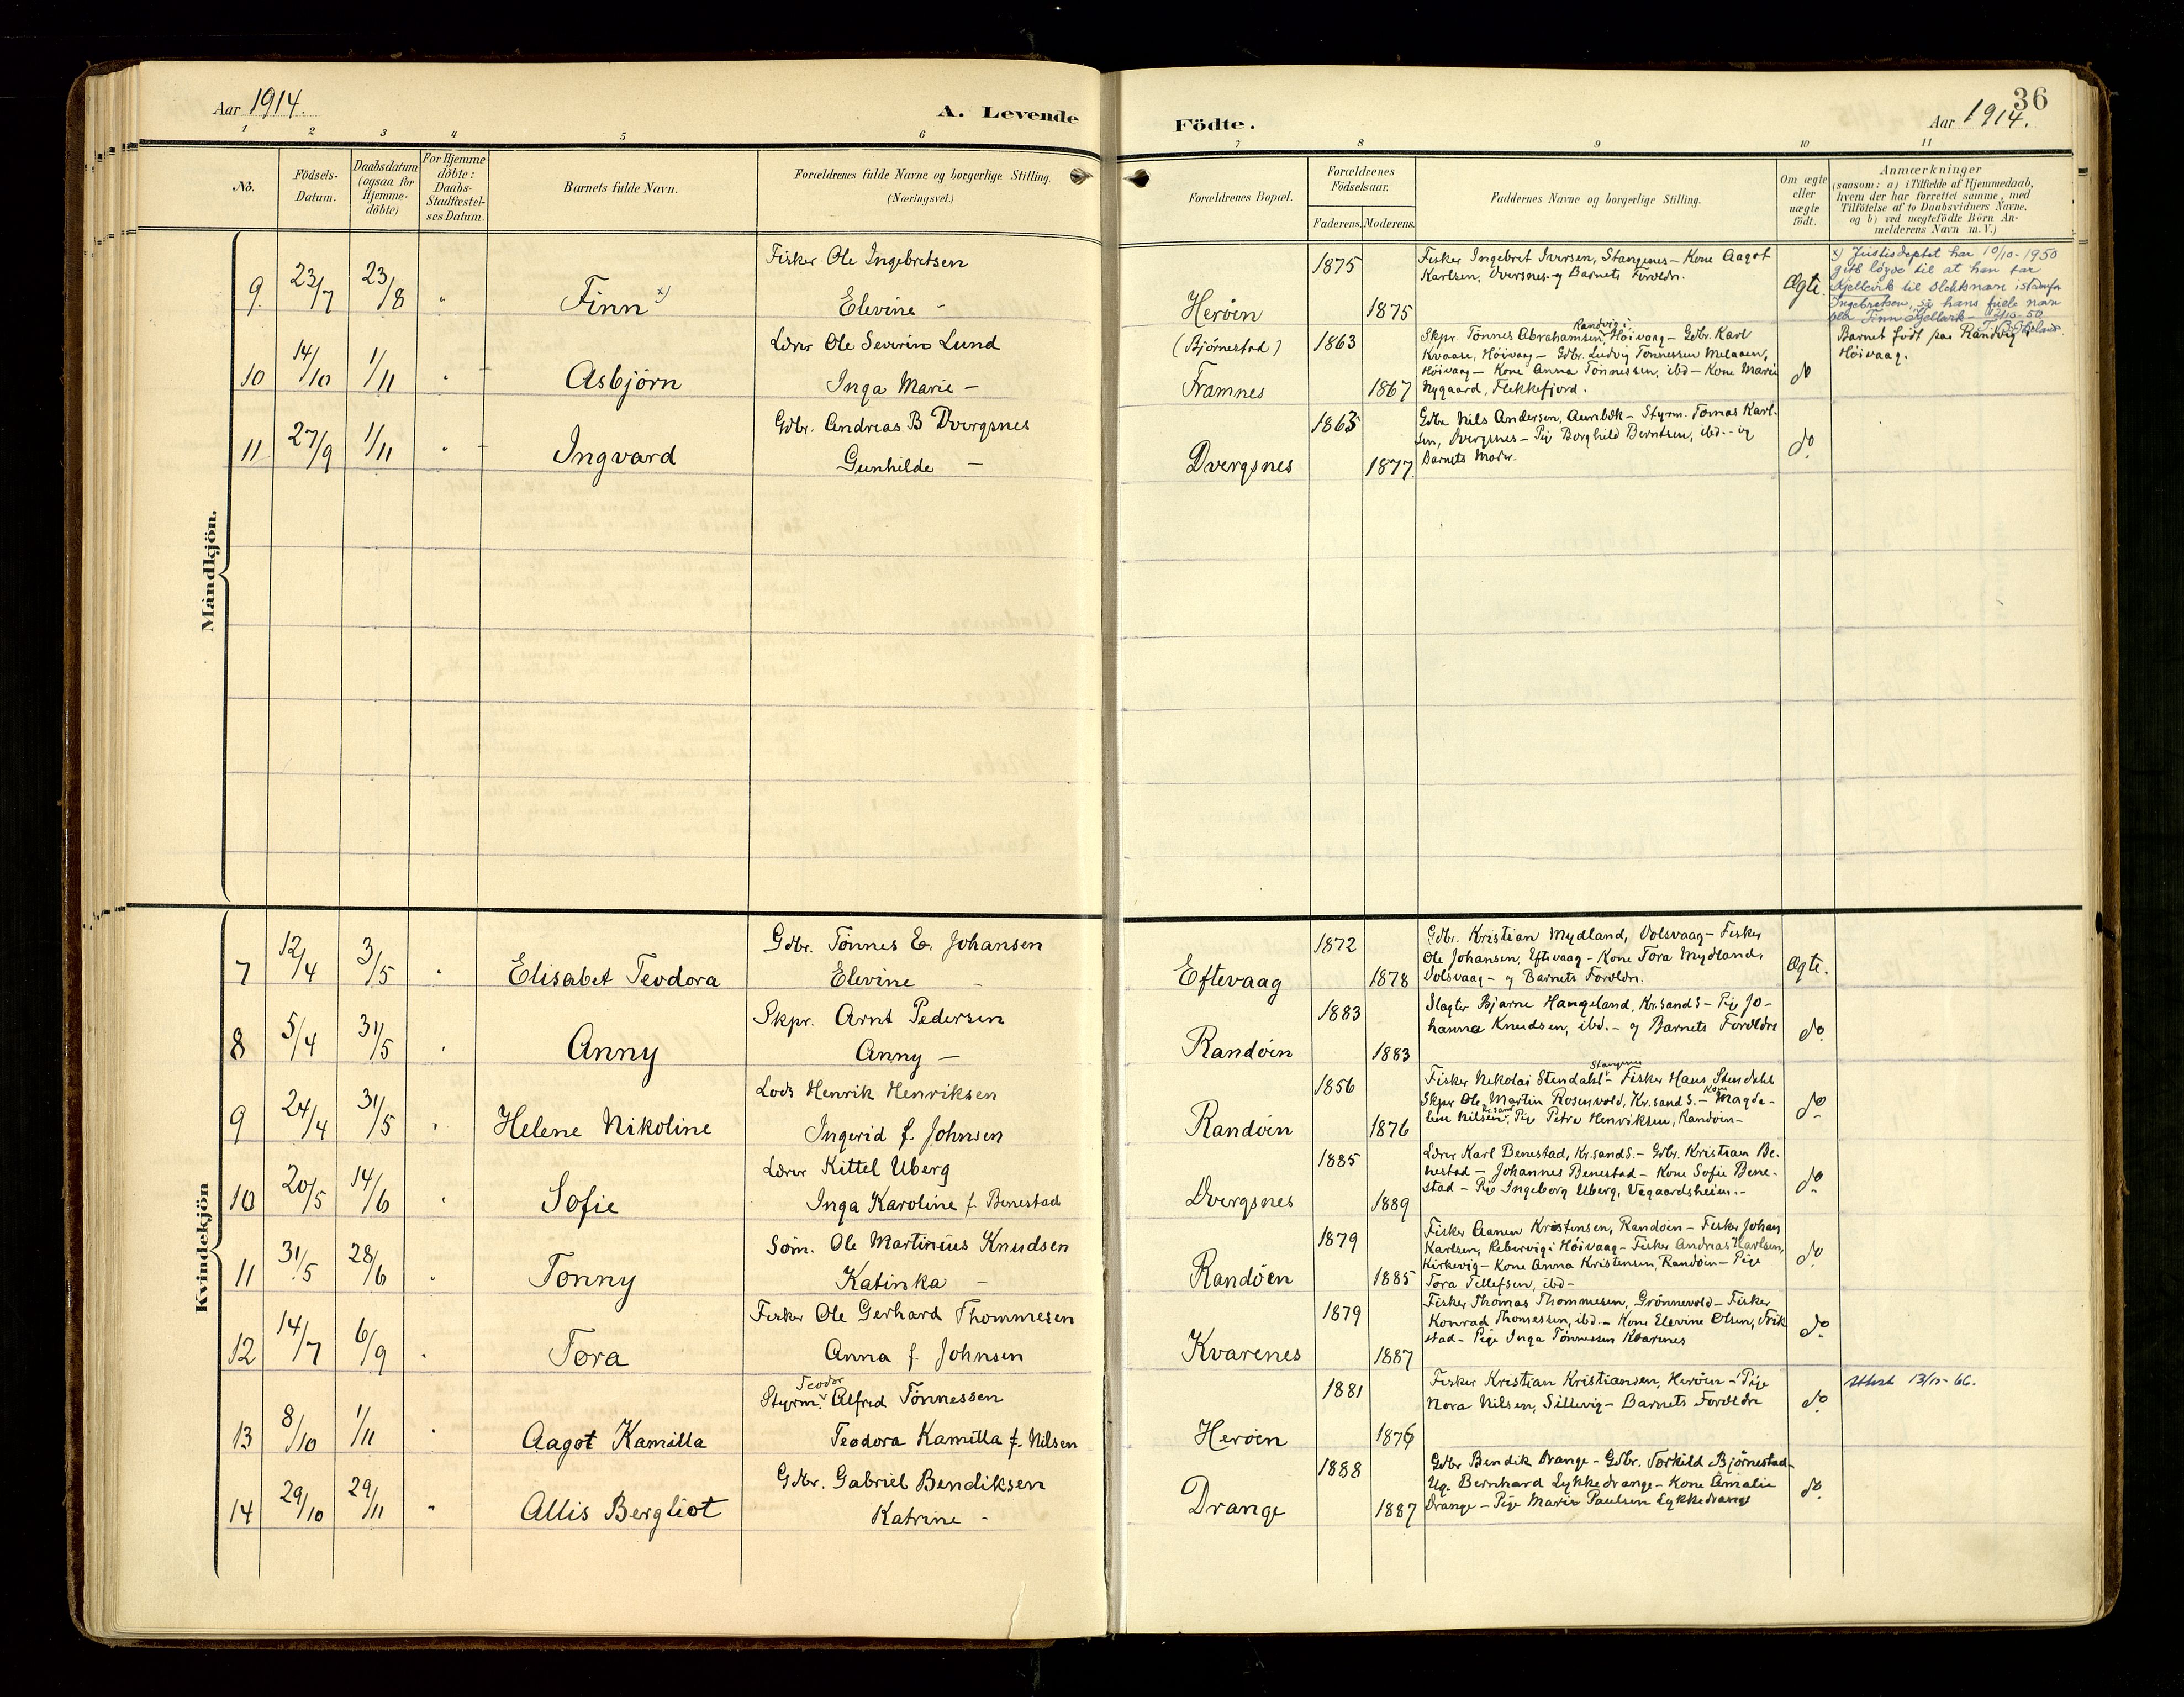 Aar 1914.
A. Levende
Födte.
36
Aar 1914.
1 2 3 4 5 6 7 8 9 10 11
No.
Födsels-
Datum.
Daabsdatum
(ogsaa for
Hjemme-
döbte)
For Hjemme
döbte:
Daabs-
Stadfæstel-
ses Datum.
Barnets fulde Navn.
Forældrenes fulde Navne og borgerlige Stilling.
(Næringsvei.)
Forældrenes Bopæl.
Forældrenes
Födselsaar.
Faderens. Moderens.
Faddernes Navne og borgerlige Stilling.
Om ægte
eller
uægte
födt.
Anmærkninger
(saasom: a) i Tilfælde af Hjemmedaab,
hvem der har forrettet samme, med
Tilföielse af to Daabsvidners Navne.
og b) ved uægtefödte Börn An-
melderens Navn m. V.)
Mandkjön.
9 23/7 23/8 " Finn x)
Fisker Ole Ingebretsen
Elevine -
Heröen
1875
1875
Fisker Ingebret Iversen, Stangenes - Kone Aagot
Karlsen, Dversnes - og Barnets Foreldr.
Ægte.
x) Justisdeptet har 10/10-1950
gitt löyve til at han tar
Kjellevik til slektsnavn istedenfor
Ingebretsen, så hans fulle navn
blir Finn
10 14/10 1/11 " Asbjörn
Lærer Ole Severin Lund
Inga Marie -
(Björnestad)
Framnes
1863
1867
Randvig i
Skpr. Tönnes Abrahamsen, Höivaag - Gdbr. Karl
Kvaase, Höivaag - Gdbr. Ludvig Tönnessen Melaaen,
Höivaag - Kone Anna Tönnessen, ibd - Kone Marie
Nygaard, Flekkefjord.
do
Barnet födt paa Randvig i
Höivaag.
11 27/9 1/11 " Ingvard
Gdbr. Andreas B Dvergsnes
Gunhilde -
Dvergsnes
1865
1877.
Gdbr Nils Andersen, Aurebæk - Styrm. Tomas Karl-
sen, Dvergsnes - Pige Borghild Berntsen, ibd. - og
Barnets Moder.
do.
Kvindekjön
7 12/4 3/5 " Elisabet Teodora
Gdbr. Tönnes E. Johansen
Elevine -
Eftevaag
1872
1878
Gdbr. Kristian Mydland, Volsvaag - Fisker
Ole Johansen, Eftevaag - Kone Tora Mydland,
Volsvaag - og Barnets Foreldr.
Ægte.
8 5/4 31/5 " Anny
Skpr. Arnt Pedersen
Anny -
Randöen
1883
1883
Slagter Bjarne Haugeland, Kr.sand S - Pige Jo-
hanna Knudsen, ibd. - og Barnets Foreldre
do.
9 24/4 31/5 " Helene Nikoline
Lods Henrik Henriksen
Ingerid f. Johnsen
Randöen
1856
1876
Stangenes
Fisker Nikolai Stendahl - Fisker Hans Stendahl
Skpr Ole Martin Rosenvold, Kr.sand S. - Kone Magda-
lene Nilsen, Kr.sand - Pige Petra Henriksen, Randöen -
do
10 20/5 14/6 " Sofie
Lærer Kittel Uberg
Inga Karoline f. Benestad
Dvergsnes
1885
1889
Lærer Karl Benestad, Kr.sand S. - Gdbr. Kristian Be-
nestad - Johannes Benestad - Kone Sofie Bene-
stad - Pige Ingeborg Uberg, Vegaardsheien. -
do
11 31/5 28/6 " Tonny
Söm. Ole Martinius Knudsen
Katinka -
Randöen
1879
1885
Fisker Aanen Kristensen, Randöen - Fisker Johan
Karlsen, Rebervig i Höivaag - Fisker Andreas Karlsen,
Kirkevig - Kone Anna Kristensen, Randöen - Pige
Tora Tellefsen, ibd -
do.
12 14/7 6/9 " Tora
Fisker Ole Gerhard Thommesen
Anna f. Johnsen
Kvarenes
1879
1887
Fisker Thomas Thommesen, Grönnevold - Fisker
Konrad Thomessen, ibd. - Kone Elevine Olsen, Frik
stad - Pige Inga Tönnessen Kvarenes
do
13 8/10 1/11 " Aagot Kamilla
Teodor
Styrm. Alfred Tönnessen
Teodora Kamilla f. Nilsen
Heröen
1881
1876
Fisker Kristian Kristiansen, Heröen - Pige
Nora Nilsen, Sillevig - Barnets Foreldre
do
Attest 13/10-66.
14 29/10 29/11 " Allis Bergliot
Gdbr. Gabriel Bendiksen
Katrine -
Drange
1888
1887
Gdbr Bendik Drange - Gdbr. Torkild Björnestad -
Ug. Bernhard Lykkedrange - Kone Amalie
Drange - Pige Marie Paulsen Lykkedrange
do.